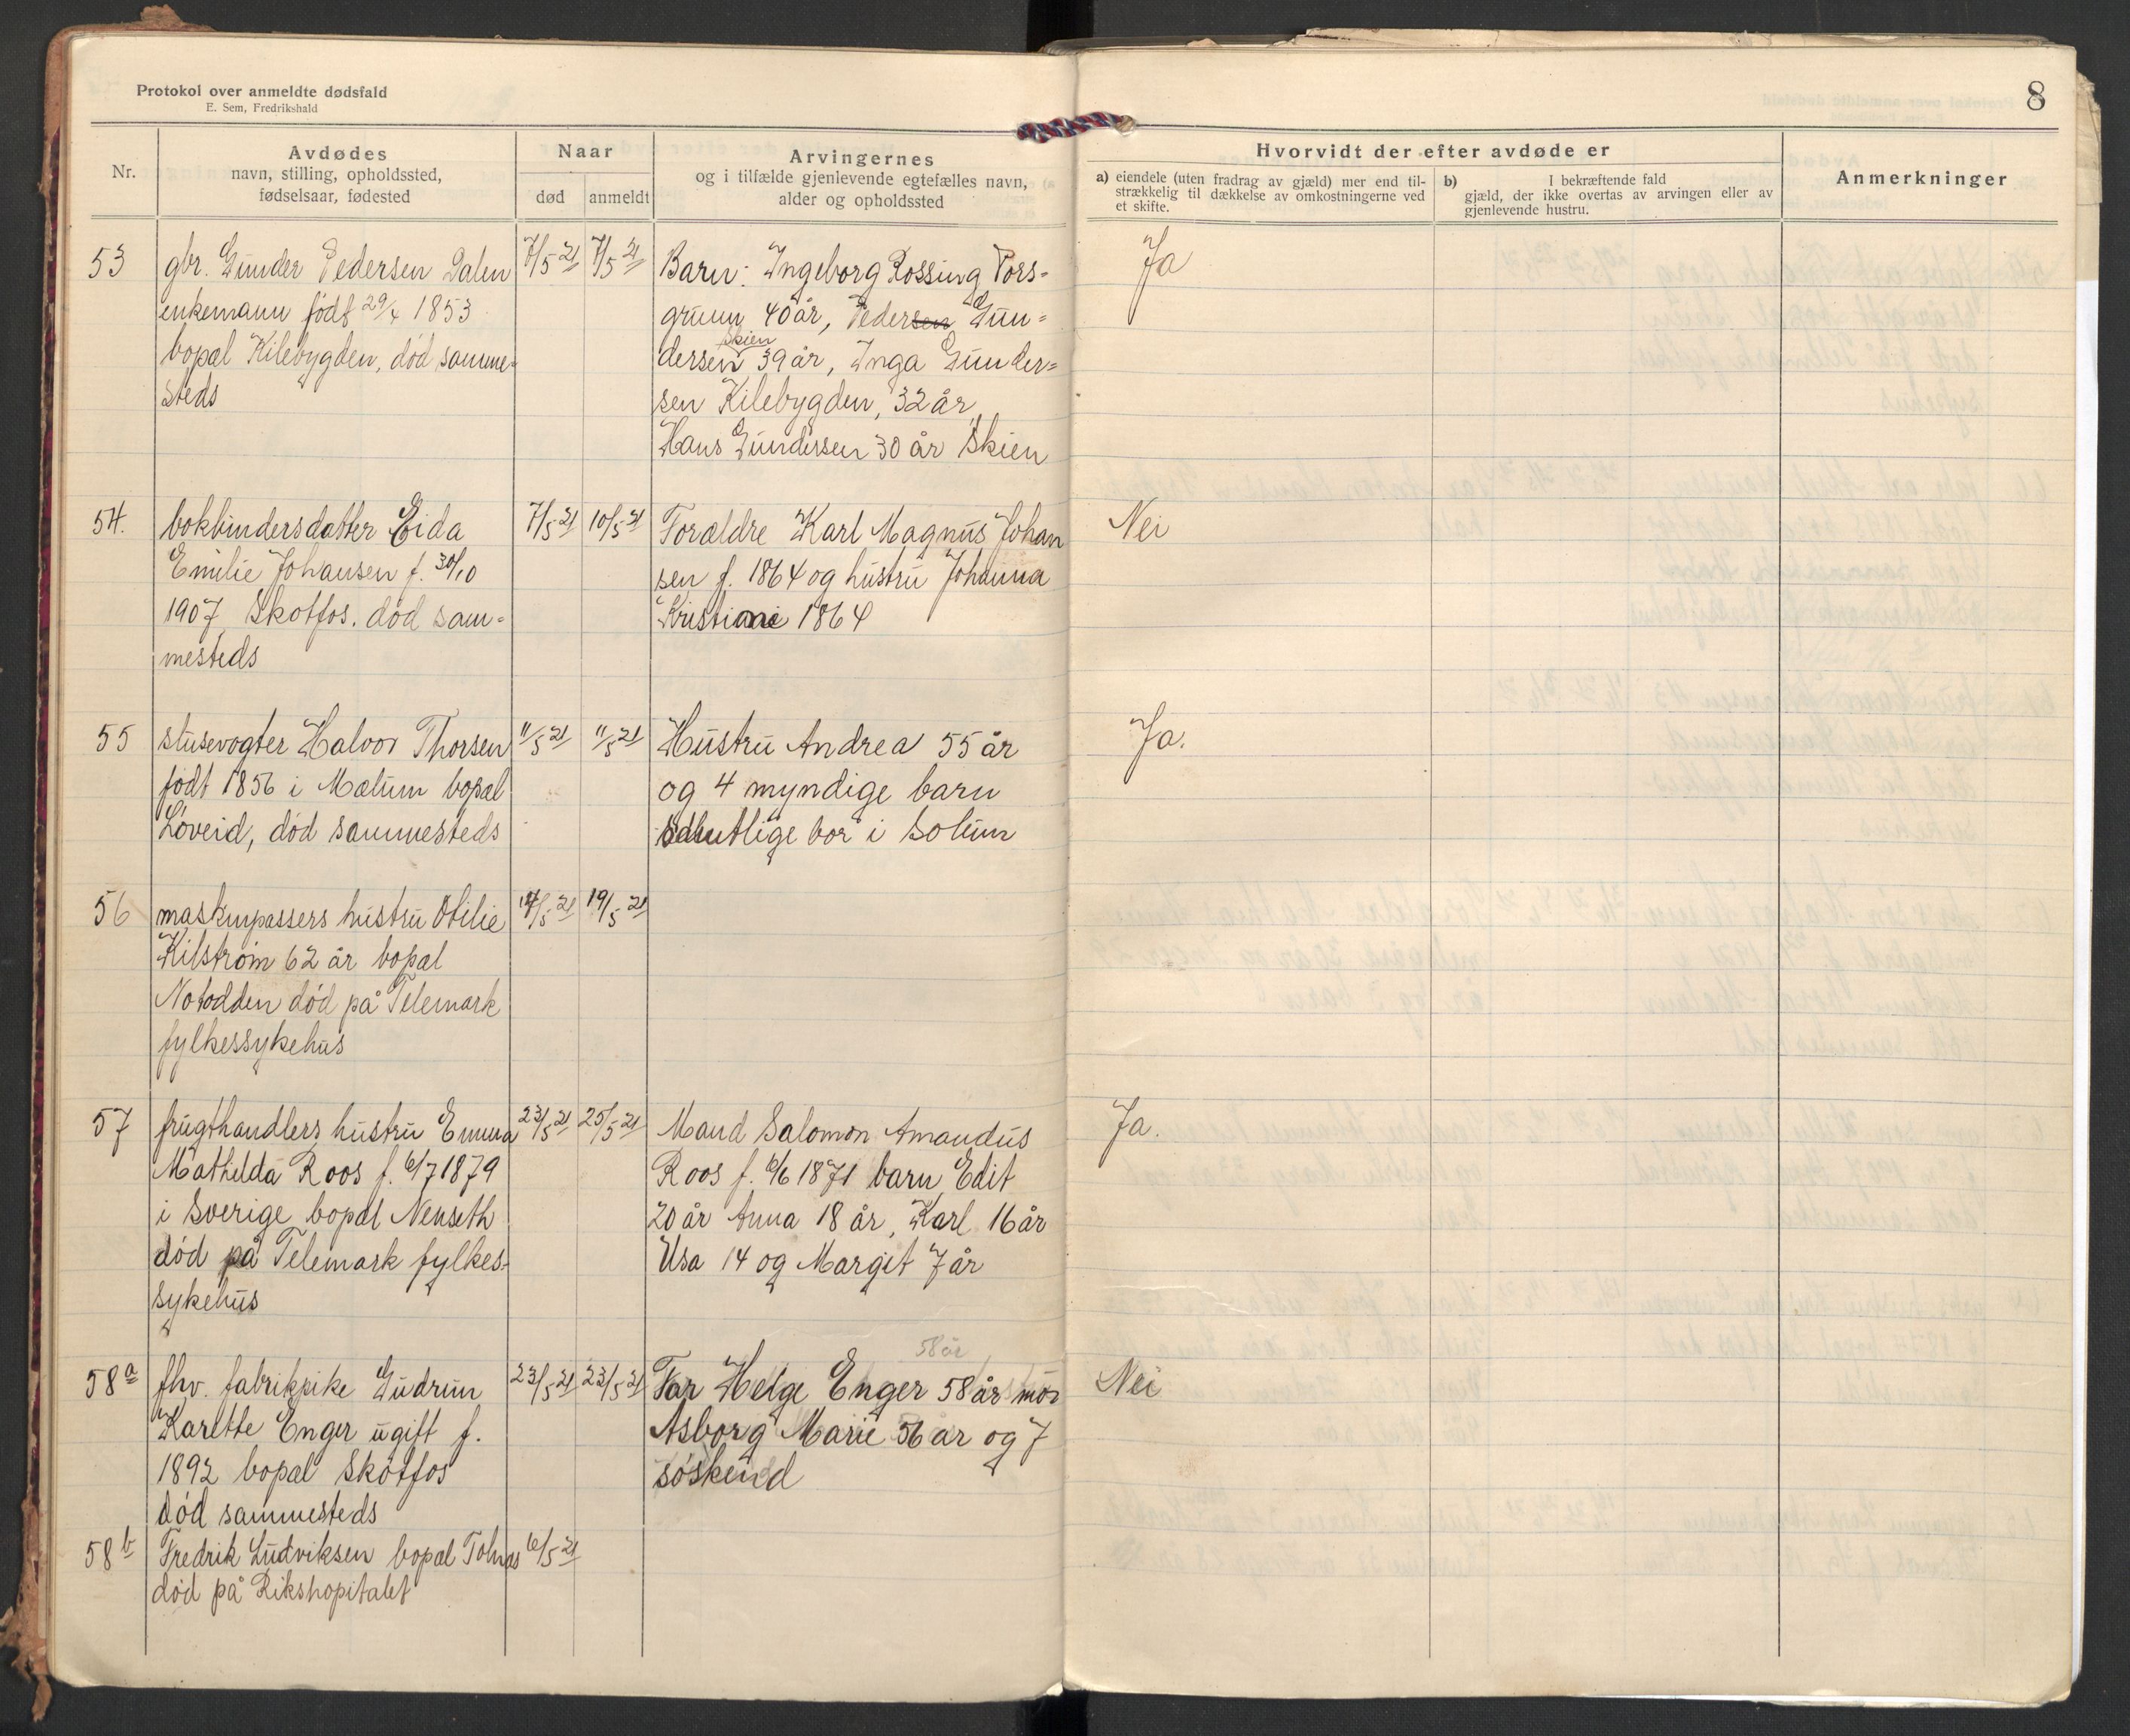 Protokol over anmeldte dødsfald
E. Sem, Fredrikshald
8
Nr.
Avdødes
navn, stilling, opholdssted,
fødselsaar, fødested
Naar
død
anmeldt
Arvingernes
og i tilfælde gjenlevende egtefælles navn,
alder og opholdssted
Hvorvidt der efter avdøde er
a) eiendele (uten fradrag av gjæld) mer end til-
strækkelig til dækkelse av omkostningerne ved
et skifte.
b) I bekræftende fald
gjæld, der ikke overtas av arvingen eller av
gjenlevende hustru.
Anmerkninger
53 gbr. Gunder Pedersen Dalen 7/5 21 7/5 21 Barn: Ingeborg Rossing Pors- Ja
enkemann født 29/4 1853 grunn 40 år, Pedersen Gun-
Skien
bopæl Kilebygden, død samme- dersen 39 år, Inga Gunder-
steds sen Kilebygden, 32 år,
Hans Gundersen 30 år Skien
54. bokbindersdatter Eida 7/5 21 10/5 21 Forældre Karl Magnus Johan Nei
Emilie Johansen f. 30/10 sen f. 1864 og hustru Johanna
1907, Skotfos. død sam- Kristiane 1864
mesteds
55 slusevogter Halvor Thorsen 11/5 21 11/5 21 Hustru Andrea 55 år Ja.
født 1856 i Mælum bopæl og 4 myndige barn
Løveid, død sammesteds samtlige bor i Solum
56 maskinpassers hustru Otilie 19/5 21
Kilstrøm 62 år bopæl
Notodden død på Telemark
fylkessykehus
57 frugthandlers hustru Emma 23/5 21 25/5 21 Mand Salomon Amandus Ja.
Mathilda Roos f. 6/7 1879 Roos f. 6/6 1871 barn Edit
i Sverige bopæl Nenseth 20 år Anna 18 år, Karl 16 år
død på Telemark fylkes- 14 og Margit 7 år
sykehus
58 år
58 a fhv. fabrikpike Gudrun 23/5 21 23/5 21 Far Helge Enger 58 år mor Nei
Karette Enger ugift f. Asborg Marie 56 år og 7
1892 bopæl Skotfos søskend
død sammesteds
58 b Fredrik Ludviksen bopæl Tolnæs 6/5 21
død på Rikshopitalet